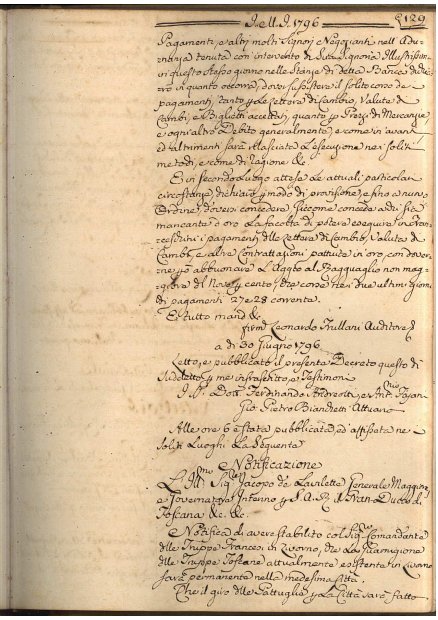 I. M. I. 1796 129
Pagamenti, e altri molti Signori, e Negozianti nell'Adu-
nanza tenuta con intervento di Sua Signoria Illustrissima
in questo stesso giorno nelle Stanze di detta Banca
in quanto occorra, doversi il solito corso de
pagamenti, tanto p le Lettere di Cambio, Valute di
Cambi, e Biglietti accettati, quanto p Prezzi di Mercanzie
e ogn'altro Debito generalmente, e come in avanti
ed altrimenti sarà rilasciata l'esecuzione nei soliti
metodi, e come di ragione &c.
E in secondo Luogo attese le attuali particolari
circostanze, dichiarò p modo di provisione, e fino a nuovo
Ordine, doversi concedere, siccome concede a chi sia
mancante d'oro la facoltà di potere eseguire in Fran-
cesconi i pagamenti delle Lettere di Cambio, Valuta di
Cambi, e altre Contrattazioni pattuite in oro, con dover-
ne p abbuonare l'Aggio al Ragguaglio non mag-
giore del Nove p cento, che corse nei due ultimi giorni
di pagamenti 27 e 28 corrente.
E tutto mandò &c.
firmò Leonardo Frullani Auditore
a di 30 Giugno 1796.
Letto, e pubblicato il presente Decreto questo dì
suddetto p me infrascritto, e Testimoni
I. P. Dott. Ferdinando Andreotti, e Ant.
Gio. Pietro Bianchetti Attuario
Alle ore 6 è stata pubblicata, ed affissata ne
soliti Luoghi la seguente
Notificazione
L'Ill.mo Sig.re Jacopo de Lavillette Generale Maggiore,
e Governatore Interino p S. A. R. il Gran-Duca di
Toscana &c. &c.
Notifica di avere stabilito col Sig.re Comandante
delle Truppe Francesi in Livorno, che la Guarnigione
delle Truppe Toscane attualmente esistente in Livorno
sarà permanente nella medesima Città.
Che il giro delle Pattuglie p la Città sarà fatto